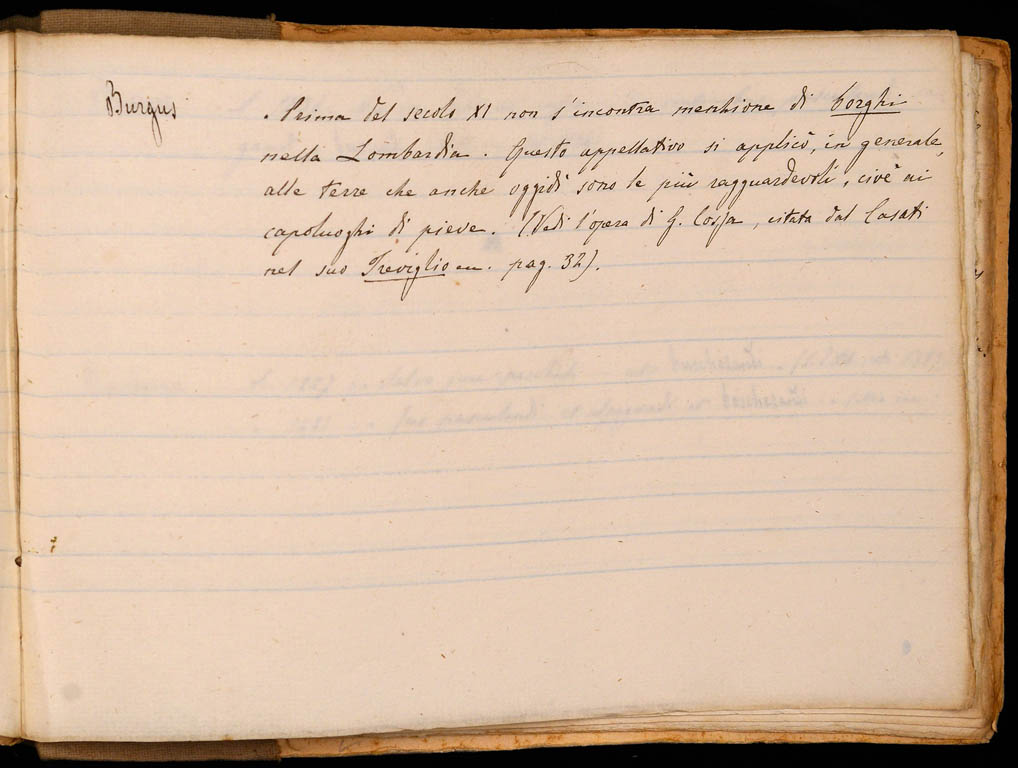 Burgus
. Prima del secolo XI non s'incontra menzione di borghi
nella Lombardia. Questo appellativo si applicò, in generale,
alle terre che anche oggidì sono le più ragguardevoli, cioè ai
capoluoghi di pieve. (Vedi l'opera di G. Cossa, citata dal Casati
nel suo Treviglio ecc. pag. 32).